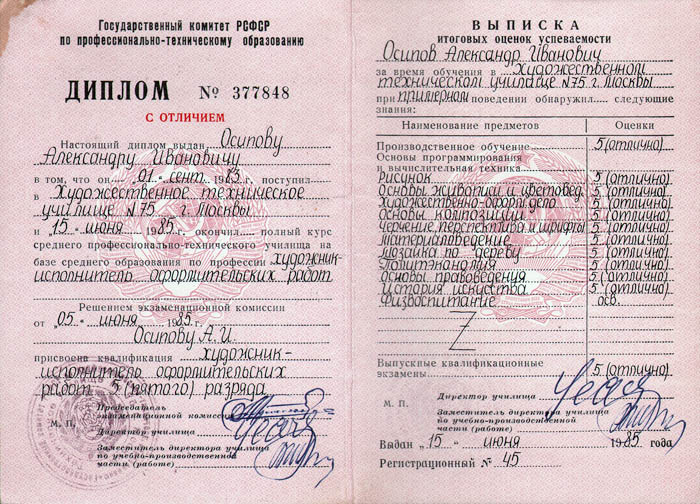 Государственный комитет РСФСР
по профессионально-техническому образованию
ДИПЛОМ № 377848
С ОТЛИЧИЕМ
Настоящий диплом выдан Осипову
Александру Ивановичу
в том, что он „01" сент. 1983 поступил
в Художественное техническое
училище N75 г. Москвы
и „15" июня 1985 г. окончил полный курс
среднего профессионально-технического училища на
базе среднего образования по профессии художник-
исполнитель оформительских работ
Решением экзаменационной комиссии
от „05" июня 1985 г.
Осипову А.И.
присвоена квалификация художник-
исполнитель оформительских
работ 5 (пятого) разряда
М. П.
Председатель
экзаменационной комиссии
Директор училища
Заместитель директора училища
по учебно-производственной
части (работе)
ВЫПИСКА
итоговых оценок успеваемости
Осипов Александр Иванович
за время обучения в Художественном
техническом училище N75 г. Москвы
при примерном поведении обнаружил следующие
знания:
Наименование предметов Оценки
Производственное обучение 5 (отлично)
Основы программирования
и вычислительная техника
Рисунок 5 (отлично)
Основы живописи и цветовед. 5 (отлично)
Художественно-оформ. дело 5 (отлично)
Основы композиции 5 (отлично)
Черчение, перспектива и шрифты 5 (отлично)
Материаловедение 5 (отлично)
Мозаика по дереву 5 (отлично)
Политэкономия 5 (отлично)
Основы правоведения 5 (отлично)
История искусства 5 (отлично)
Физвоспитание осв.
Z
Выпускные квалификационные
экзамены 5 (отлично)
М. П.
Директор училища
Заместитель директора училища
по учебно-производственной
части (работе)
Выдан „15" июня 1985 года
Регистрационный № 45